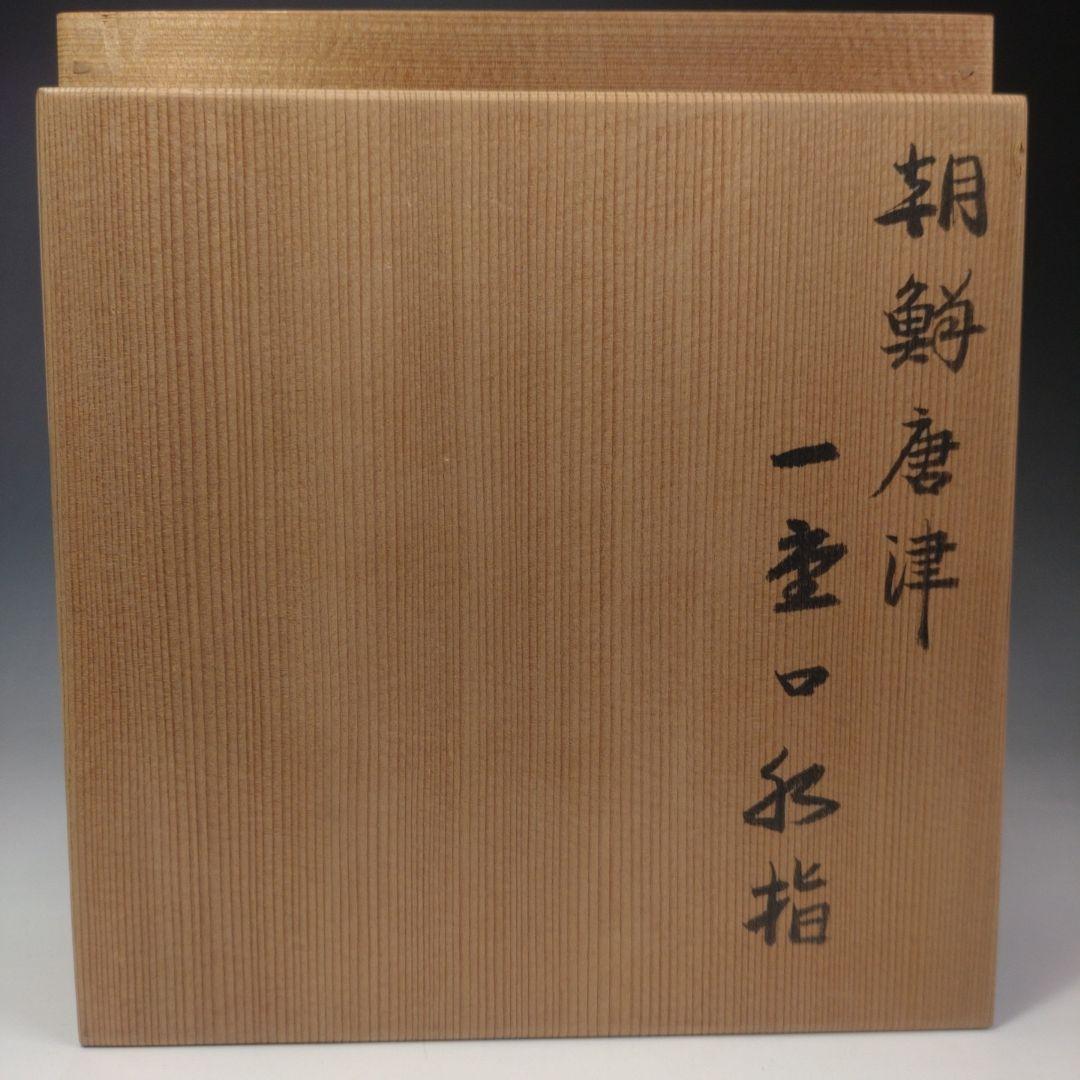 朝鮮唐津
一重口水指